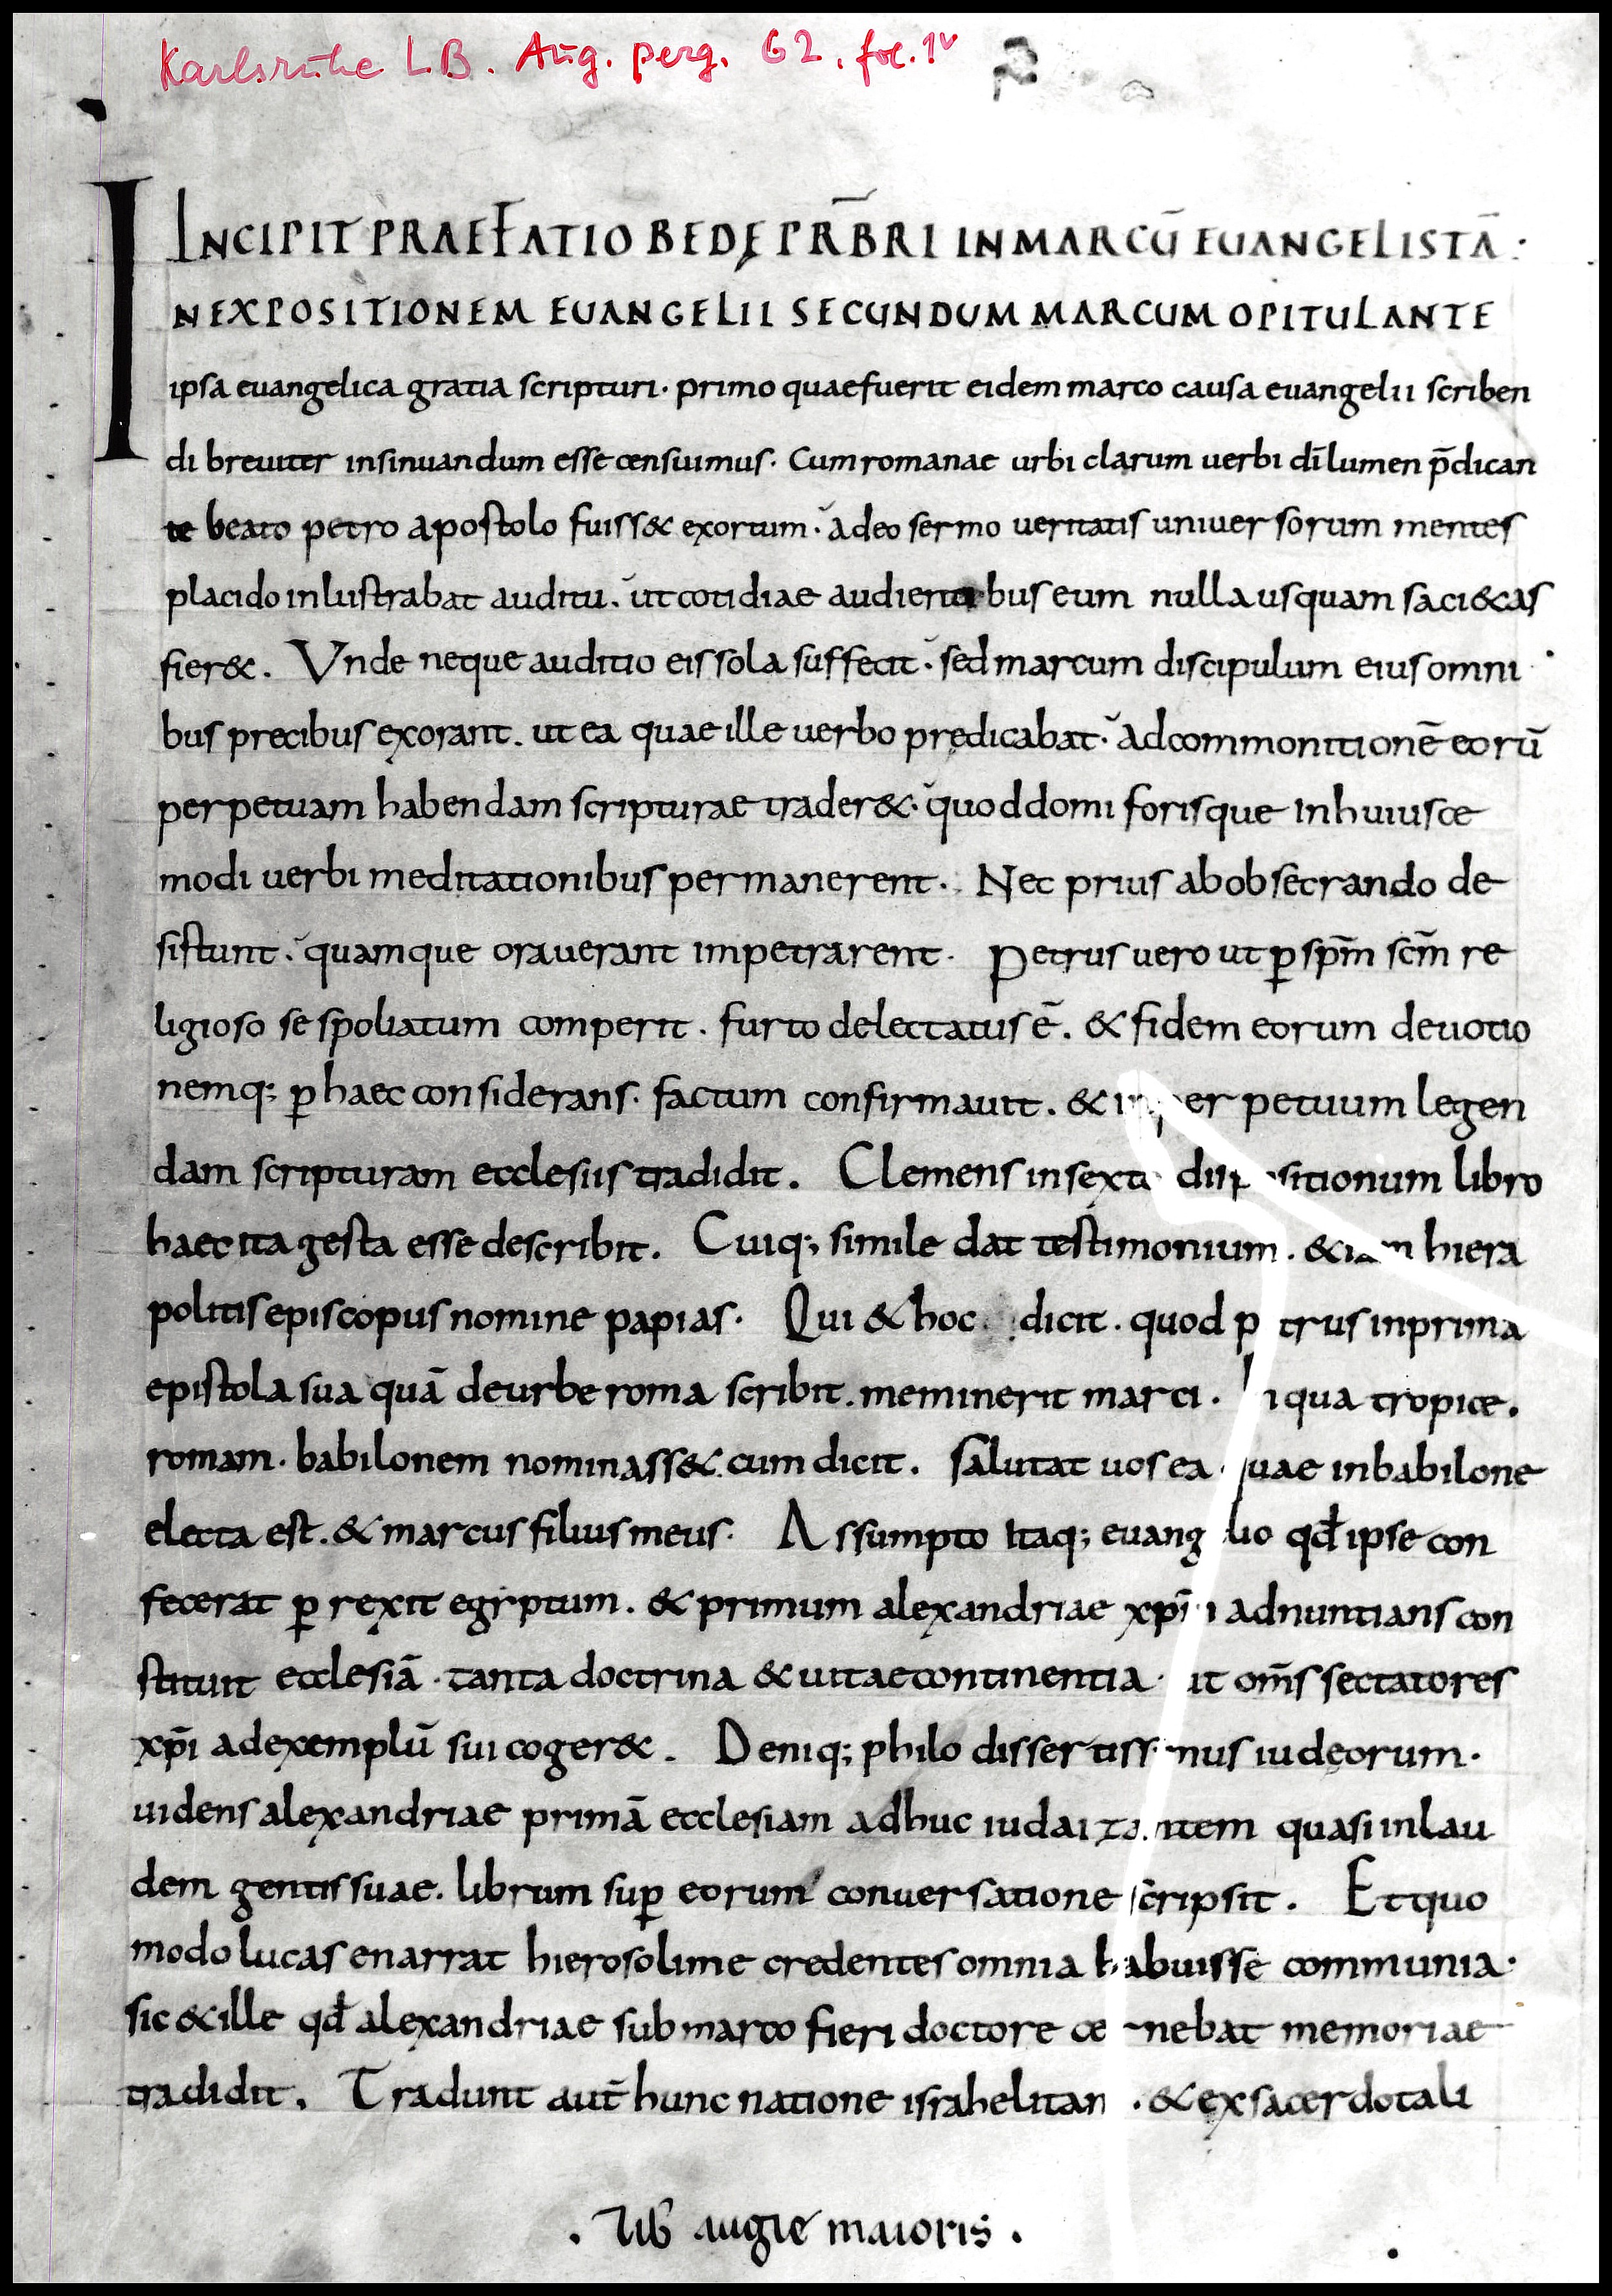 Karlsruhe L.B. Aug. perg. 62. fol. 1v
INCIPIT PRAEFATIO BEDĘ PR̄BRI IN MARCŪ EUANGELISTĀ·
IN EXPOSITIONEM EUANGELII SECUNDUM MARCUM OPITULANTE
ipsa euangelica gratia scripturi· primo quae fuerit eidem marco causa euangelii scriben
di breuiter insinuandum esse censuimus· Cum romanae urbi clarum uerbi dī lumen p̄dican
te beato petro apostolo fuiss& exortum· adeo sermo ueritatis uniuersorum mentes
placido inlustrabat auditu. ut cotidiae audientibus eum nulla usquam saci&as
fier&. Unde neque auditio eis sola suffecit· sed marcum discipulum eius omni
bus precibus exorant. ut ea quae ille uerbo prędicabat· ad commonitionē eorū
perpetuam habendam scripturae trader&· quod domi forisque in huiusce
modi uerbi meditationibus permanerent· Nec prius ab obsecrando de
sistunt. quam que orauerant impetrarent· Petrus uero ut ꝑ sp̄m sc̄m re
ligioso se spoliatum comperit. furto delectatus ē. & fidem eorum deuotio
nemq; ꝑ haec considerans· factum confirmauit. & in per petuum legen
dam scripturam ecclesiis tradidit. Clemens in sexto dispositionum libro
haec ita gesta esse describit. Cuiq; simile dat testimonium. &iam hiera
politis episcopus nomine papias· Qui & hoc dicit. quod p trus in prima
epistola sua quā de urbe roma scribit. meminerit marci. iqua tropice.
romam· babilonem nominass&. cum dicit. salutat uos ea· uae in babilone
electa est. & marcus filius meus· Assumpto itaq; euang lio qđ ipse con
fecerat ꝑ rexit egyptum. & primum alexandriae xp̄i adnuntians con
stituit ecclesiā· tanta doctrina & uitae continentia· ut om̄s sectatores
xp̄i ad exemplū sui coger&. Deniq; philo dissertiss mus iudęorum·
uidens alexandriae primā ecclesiam adhuc iudaizantem quasi in lau
dem gentis suae. librum suꝑ eorum conuersatione scripsit. Et quo
modo lucas enarrat hierosolime credentes omnia habuisse communia·
sic & ille qđ alexandriae sub marco fieri doctore ce nebat memoriae
tradidit. Tradunt aut̄ hunc natione israhelitan . & ex sacerdotali
. Lib̄ augie maioris .